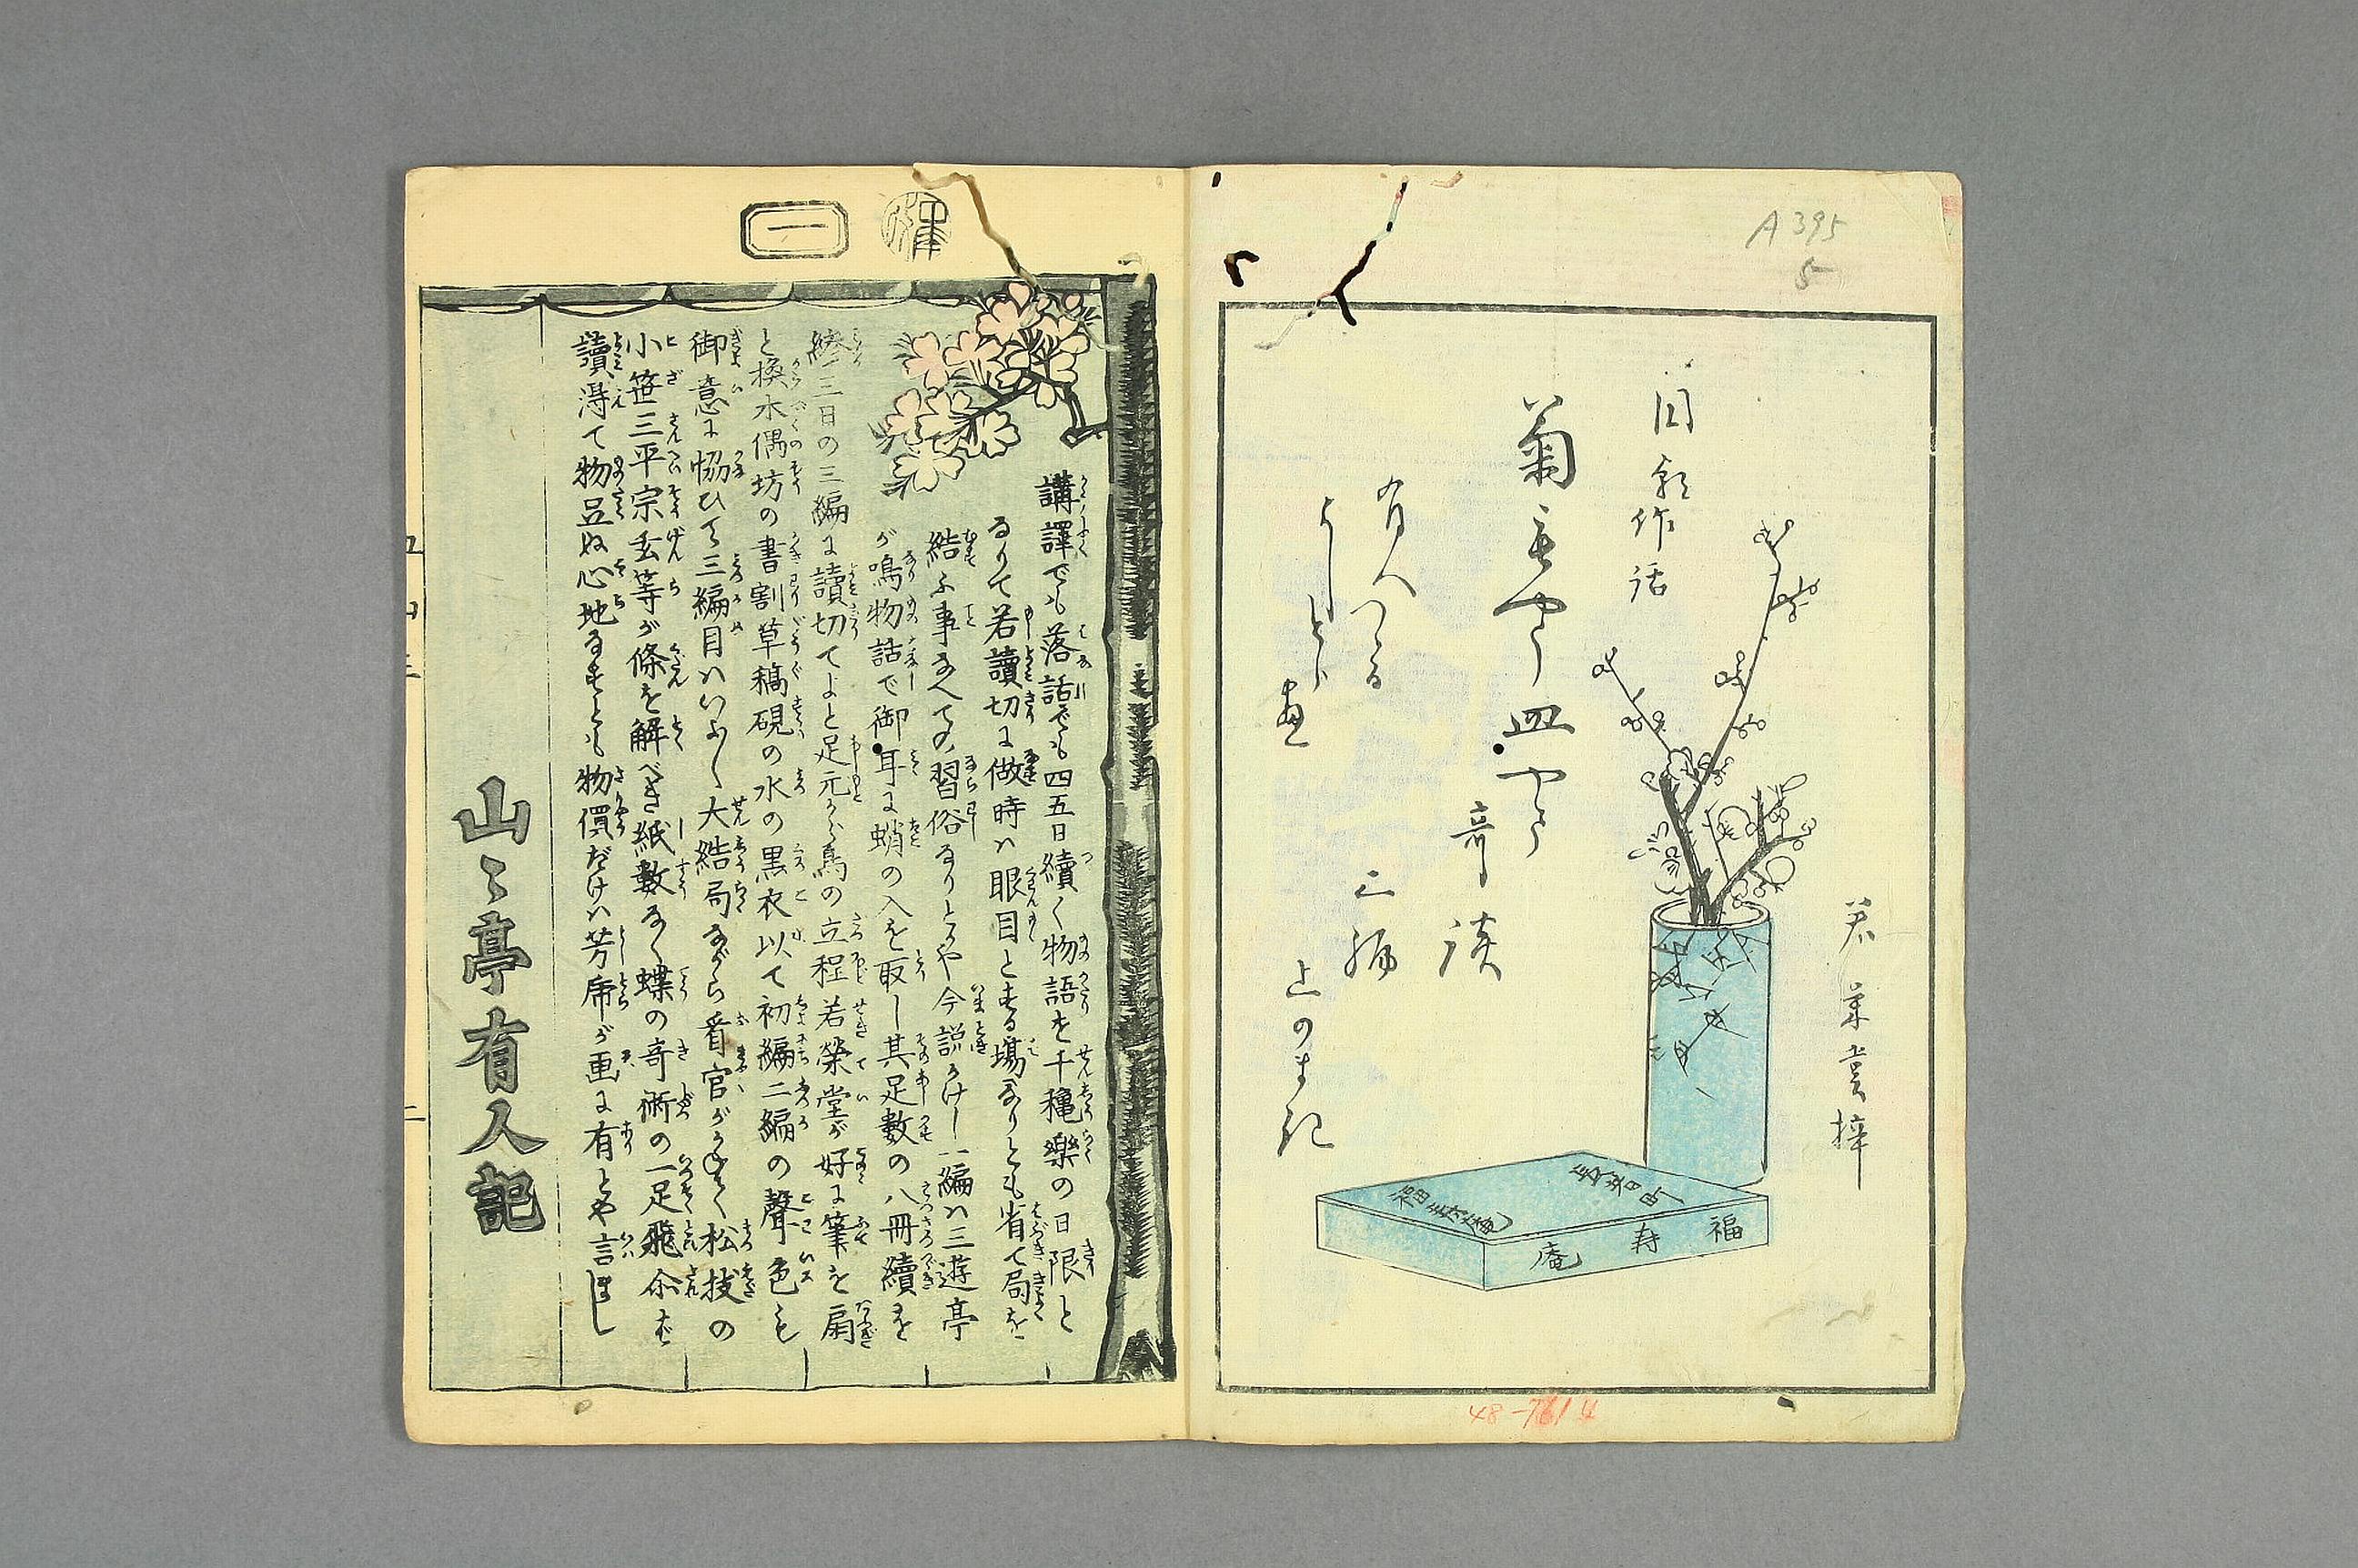 A395
5
円朝作話
菊もやう皿やま
奇談
三編
上のまき
有人つゞる
よしとら画
若栄堂梓
福寿庵
48-7614
一
講譯でも落話でも四五日續く物語を千穐樂の日限と
なりて若讀切に做時ハ眼目とする場なりとも省て局を
結ふ事なべての習俗なりとかや今説かけし一編ハ三遊亭
が鳴物話で御耳に蛸の入を取し其足數の八冊續を
縿三日の三編に讀切てよと足元から鳥の立程若榮堂が好に筆を扇
と換木偶坊の書割草稿硯の水の黒衣以て初編二編の聲色も
御意に恊ひて三編目ハいよ〳〵大結局ながら看官が松技の
小笹三平宗玄等が條を解べき紙數なく蝶の奇術の一足飛余は
讀淂て物足ぬ心地なすとも物價だけハ芳虎が画に有とや言まし
山〻亭有人記